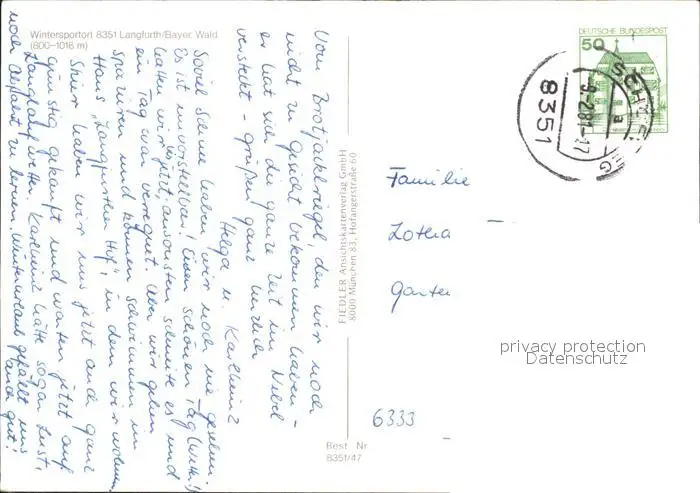 Wintersportort 8351 Langfurth/Bayer. Wald
(800–1016 m)
Vom Brotjacklriegel, den wir noch
nicht zu Gesicht bekommen haben –
er hat sich die ganze Zeit im Nebel
versteckt – grüßen ganz herzlich
Helga u. Karlheinz
Soviel Schnee haben wir noch nie gesehen.
Es ist unvorstellbar! Einen schönen Tag
hatten wir jetzt, ansonsten schneite es und
ein Tag war verregnet. Aber wir gehen
spazieren und können schwimmen im
Haus "Langfurther Hof", in dem wir wohnen.
Skier haben wir uns jetzt auch ganz
günstig gekauft und warten jetzt auf
Langlaufwetter. Karlheinz hätte sogar Lust,
noch Abfahrt zu lernen. Winterurlaub gefällt uns
auch gut!
FIEDLER Ansichtskartenverlag GmbH
8000 München 83, Hofangerstraße 60
Best. Nr.
8351/47
DEUTSCHE BUNDESPOST
50
8351
-9.-2.81-17
a
Familie
Lotha
Garte
6333
privacy protection
Datenschutz